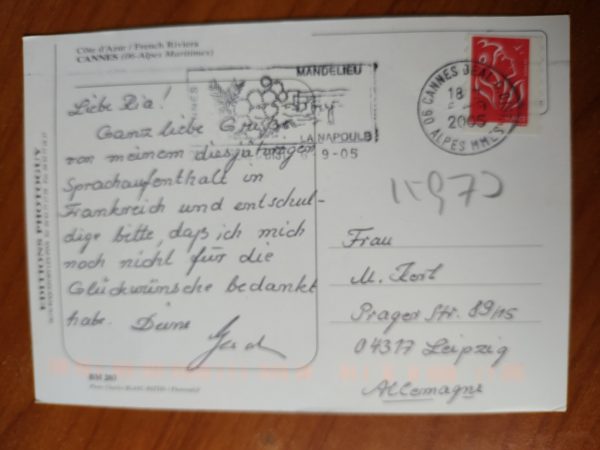 Côte d'Azur / French Riviera
CANNES (06-Alpes Maritimes)
MANDELIEU
LA NAPOULE
-9-05
06 CANNES
18
2005
ALPES MMES
Liebe Ria!
Ganz liebe Grüße
von meinem diesjährigen
Sprachaufenthalt in
Frankreich und entschul-
dige bitte, daß ich mich
noch nicht für die
Glückwünsche bedankt
habe. Deine
Frau
Prager Str. 89/15
04317 Leipzig
Allemagne
EDITIONS PHOTOGUY